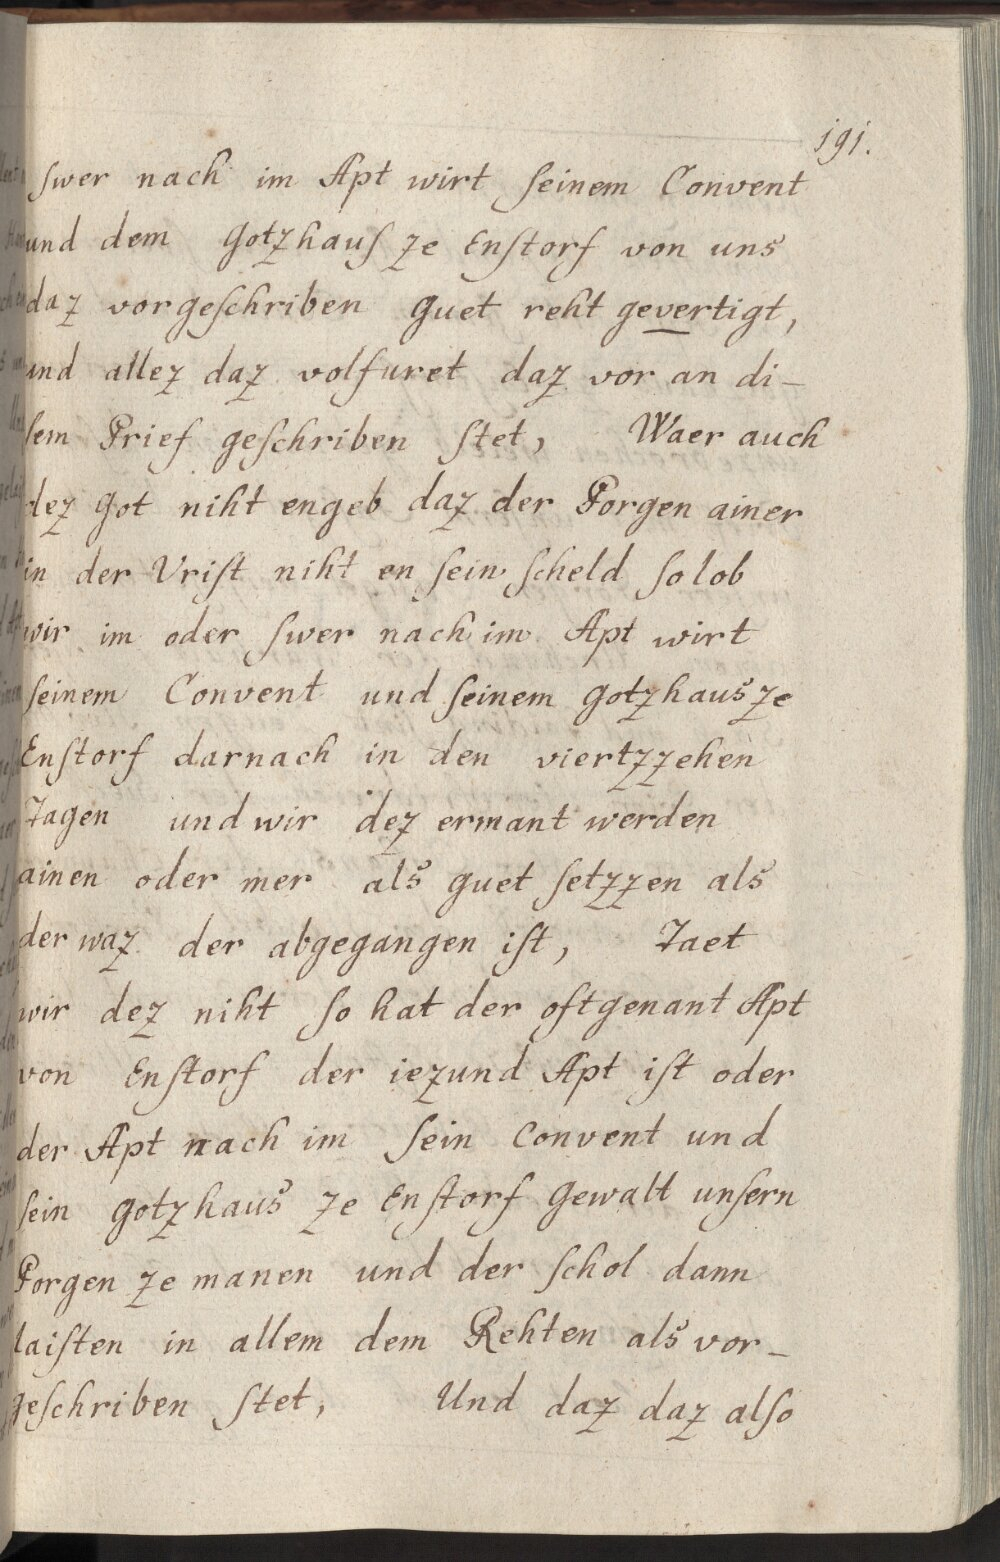 191.
swer nach im Apt wirt seinem Convent
und dem gotzhaus ze Enstorf von uns
daz vorgeschriben guet reht gevertigt,
und allez daz volfuret daz vor an di-
sem Prief geschriben stet, Waer auch
dez got niht engeb daz der Porgen ainer
in der Vrist niht en sein scheld so lob
wir im oder swer nach im Apt wirt
seinem Convent und seinem gotzhaus ze
Enstorf darnach in den viertzzehen
Tagen und wir dez ermant werden
ainen oder mer als guet setzzen als
der waz der abgegangen ist, Taet
wir dez niht so hat der oftgenant Apt
von Enstorf der iezund Apt ist oder
der Apt nach im sein Convent und
sein gotzhaus ze Enstorf gewalt unsern
Porgen ze manen und der schol dann
laisten in allem dem Rehten als vor-
geschriben stet, Und daz daz also